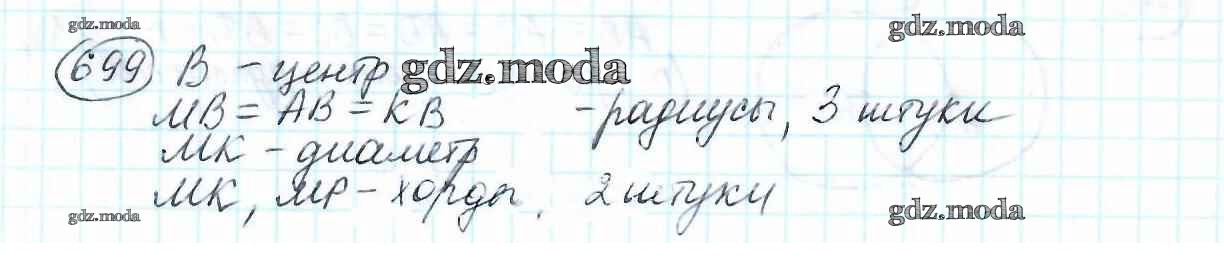 gdz.moda gdz.moda
699 В - центр gdz.moda
МВ = АВ = КВ - радиусы, 3 штуки
МК - диаметр
МК, МР - хорды, 2 штуки
gdz.moda gdz.moda